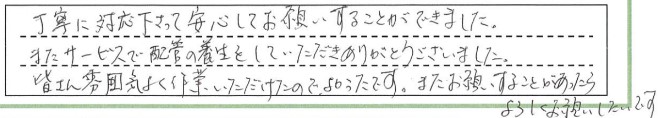 丁寧に対応下さって安心してお願いすることができました。
またサービスで配管の養生をしていただきありがとうございました。
皆さん雰囲気よく作業いただけたのでよかったです。またお願いすることがあったら
よろしくお願いしたいです